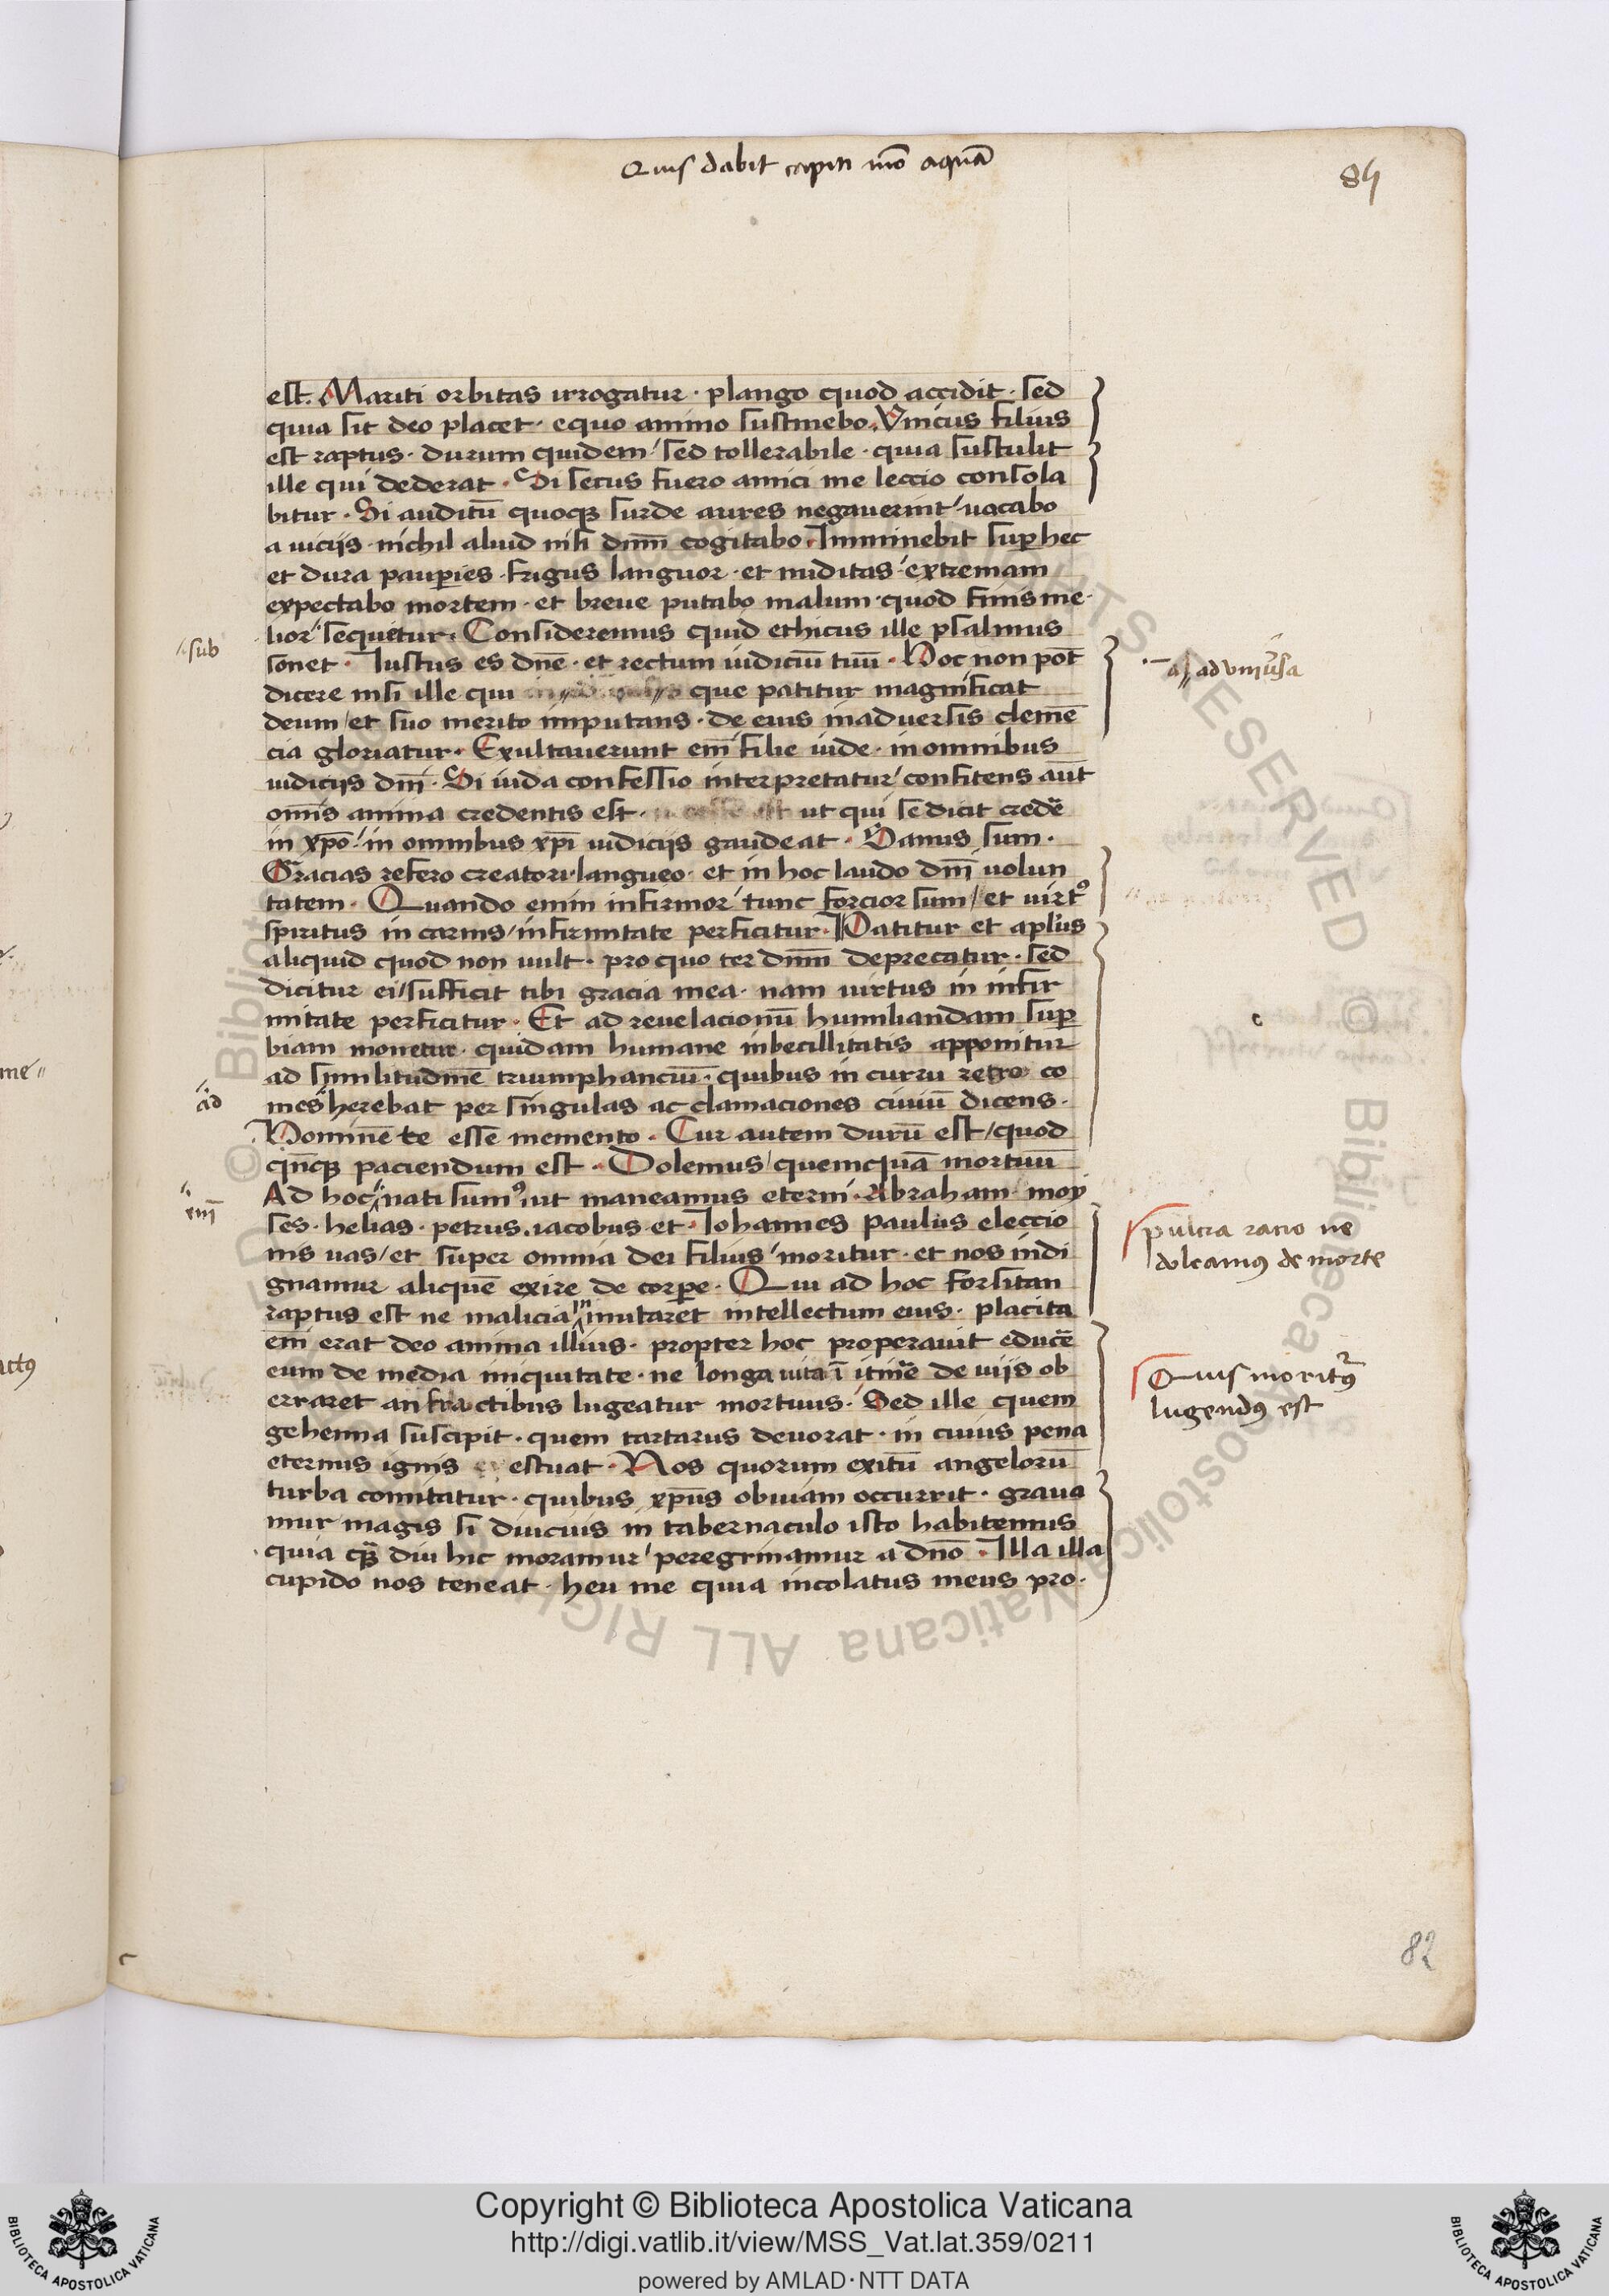 Quis dabit capiti mō aquā
84
est. Mariti orbitas irrogatur · plango quod accidit · sed
quia sit deo placet · equo animo sustinebo. Vnicus filius
est raptus · durum quidem / sed tollerabile · quia sustulit
ille qui dederat · Si secus fuero amici me leccio consola
bitur · Si auditū quoqꝫ surde aures negauerint / uacabo
a uicijs · nichil aliud nisi dnm̄ cogitabo. Imminebit suꝑ hec
et dura pauꝑies · frigus languor · et nuditas / extremam
expectabo mortem · et breue putabo malum · quod finis me
lior sequetur. Consideremus quid ethicus ille psalmus
sub
sonet · Iustus es dn̄e · et rectum iudiciū tuū · Hoc non pot̄
al' ad vniu͛sa
dicere nisi ille qui que patitur magnificat
deum / et suo merito imputans · de eius in aduersis clemē
cia gloriatur · Exultauerunt em̄ filie iude · in omnibus
iudicijs dn̄i · Si iuda confessio interpretatur / confitens aūt
om̄is anima credentis est · necesse est ut qui se dicit credē
in xp̄o / in omnibus xp̄i iudicijs gaudeat · Sanus sum ·
Gracias refero creatori · langueo · et in hoc laudo dn̄i uolun
tatem · Quando enim infirmor / tunc forcior sum / et uirtꝰ
spiritus in carnis / infirmitate perficitur · Patitur et apl̄us
aliquid quod non uult · pro quo ter dnm̄ deprecatur · sed
dicitur ei / sufficit tibi gracia mea · nam uirtus in infir
mitate perficitur · Et ad reuelacionū humiliandam suꝑ
biam monetur · quidam humane inbecillitatis apponitur
ad similitudinē triumphanciū · quibus in curru retro co
ad
mes herebat per singulas ac clamaciones ciuiū dicens ·
Hominē te esse memento · Cur autem durū est / quod
qn̄cqꝫ paciendum est · Dolemus / quemquā mortuū
Ad hoc nati sumꝰ ut maneamus eterni · Abraham · moy
em̄
ses · helias · petrus · iacobus · et · Iohannes paulus eleccio
nis uas / et super omnia dei filius / moritur · et nos indi
pulcra racio ne
doleamꝰ de morte
gnamur aliquē exire de corꝑe · Qui ad hoc forsitan
raptus est ne malicia in mutaret intellectum eius · placita
em̄ erat deo anima illius · propter hoc properauit educē
eum de media iniquitate · ne longa uita ī itin̄e de uijs ob
Quis moritꝰr
lugendꝰ est
erraret anfractibus lugeatur mortuus · Sed ille quem
gehenna suscipit · quem tartarus deuorat · in cuius pena
eternus ignis estuat · Nos quorum exitū angelorū
turba comitatur · quibus xp̄us obuiam occurrit · graua
mur magis si diucius in tabernaculo isto habitemus
quia qꝫ̄ diu hic moramur / peregrinamur a dn̄o · Illa illa
cupido nos teneat · heu me quia incolatus meus pro
82
Copyright © Biblioteca Apostolica Vaticana
http://digi.vatlib.it/view/MSS_Vat.lat.359/0211
powered by AMLAD·NTT DATA
BIBLIOTECA APOSTOLICA VATICANA
BIBLIOTECA APOSTOLICA VATICANA